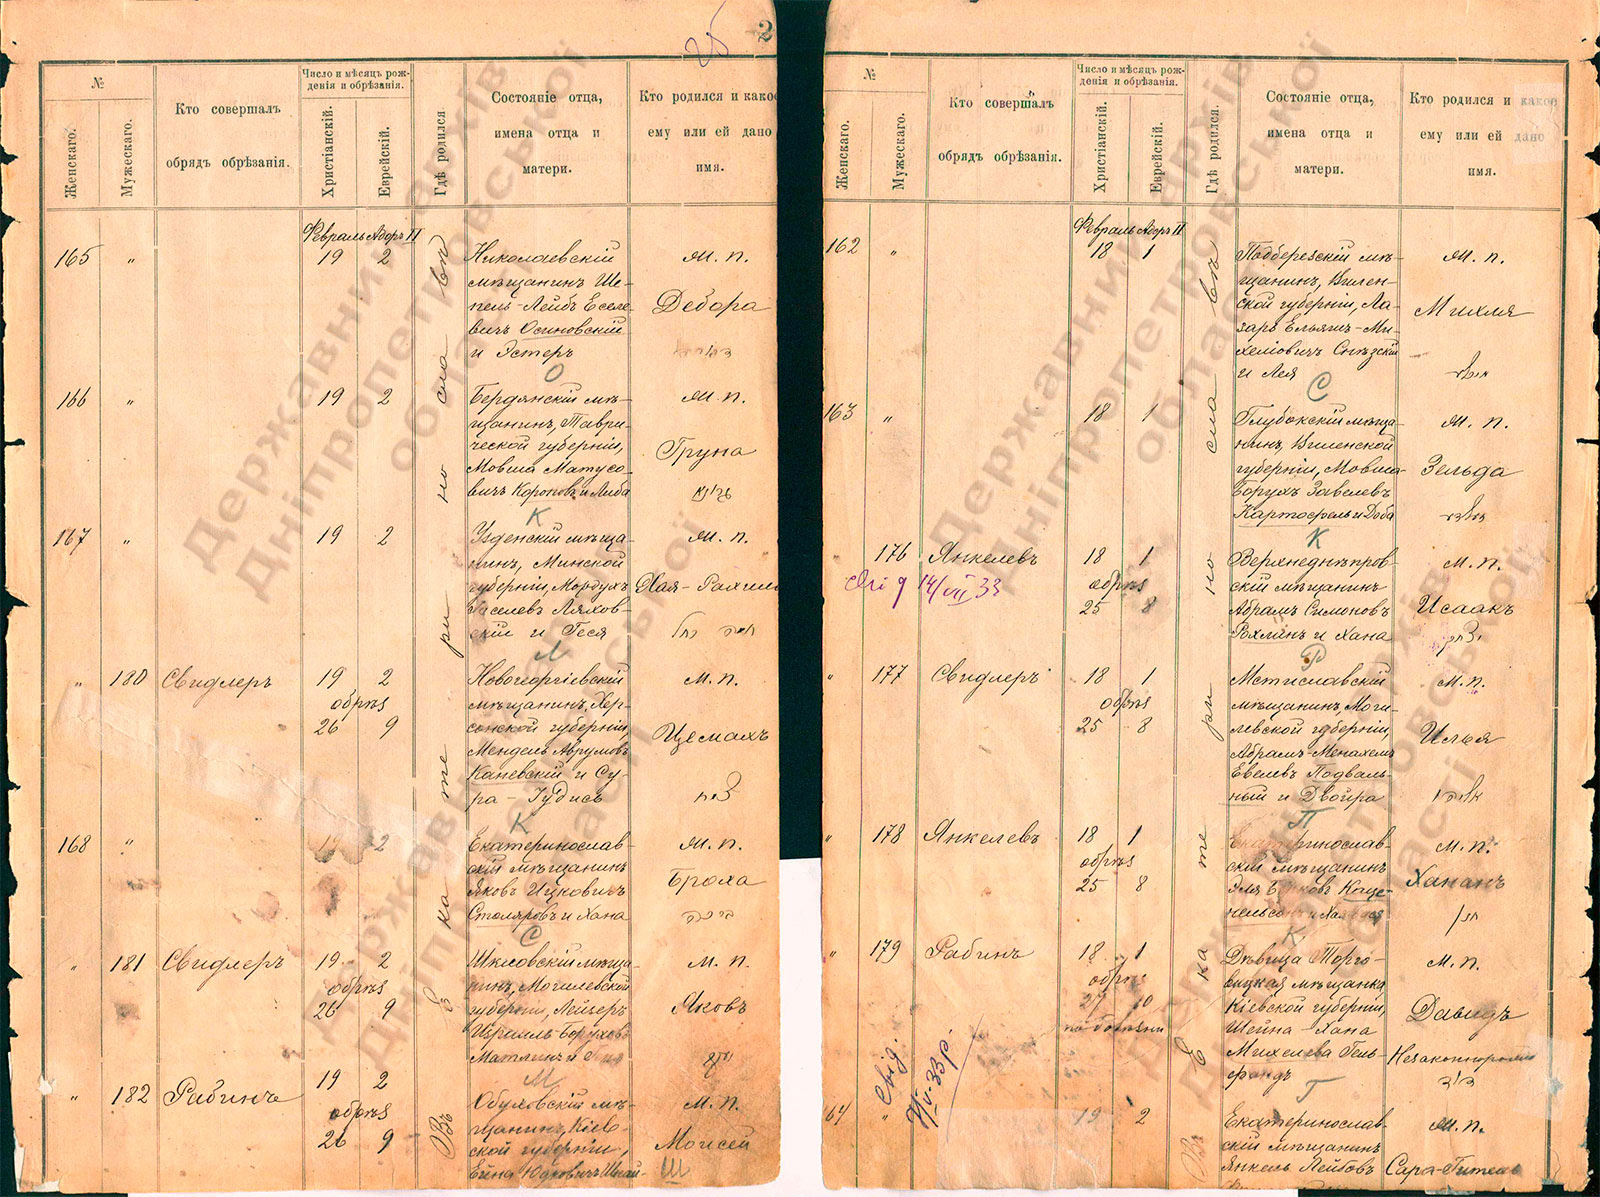 25
2
№
Женскаго.
Мужескаго.
Кто совершалъ
обрядъ обрѣзанія.
Число и мѣсяцъ рож-
денія и обрѣзанія.
Христіанскій.
Еврейскій.
Гдѣ родился
Состояніе отца,
имена отца и
матери.
Кто родился и какое
ему или ей дано
имя.
Февраль Адоръ II
Въ Екатеринославѣ
165 " 19 2
Николаевскій
мѣщанинъ Ше-
пель-Лейбъ Еселе-
вичъ Осиновскій
и Эстеръ
М. п.
Дебора
О
166 " 19 2
Бердянскій мѣ-
щанинъ, Таври-
ческой губерніи,
Мовша Матусо-
вичъ Короповъ и Либа
М. п.
Груна
К
167 " 19 2
Узденскій мѣща-
нинъ, Минской
губерніи, Мордухъ
Гаселевъ Ляхов-
скій и Геся
М. п.
Хая-Рахиль
Л
" 180 Свидлеръ 19 2
обрѣз
26 9
Новогеоргіевскій
мѣщанинъ, Хер-
сонской губерніи,
Мендель Аврумовъ
Каневскій и Су-
ра-Іудись
М. п.
Цемахъ
צמח
К
168 " 19 2
Екатеринослав-
скій мѣщанинъ
Яковъ Ицковичъ
Столяровъ и Хана
М. п.
Броха
ברכה
С
" 181 Свидлеръ 19 2
обрѣз
26 9
Шкловскій мѣща-
нинъ, Могилевской
губерніи, Лейзеръ
Израиль Боруховъ
Матлинъ и
М. п.
Яковъ
М
" 182 Рабинъ 19 2
обрѣз
26 9
Обуховскій мѣ-
щанинъ, Кіев-
ской губерніи,
М. п.
Моисей
Ш
№
Женскаго.
Мужескаго.
Кто совершалъ
обрядъ обрѣзанія.
Число и мѣсяцъ рож-
денія и обрѣзанія.
Христіанскій.
Еврейскій.
Гдѣ родился.
Состояніе отца,
имена отца и
матери.
Кто родился и какое
ему или ей дано
имя.
Февраль Адоръ II
Въ Екатеринославѣ
162 " 18 1
Подберезскій мѣ-
щанинъ, Вилен-
ской губерніи, Ла-
зарь Ельяшъ-Ми-
хелевичъ
и Лея
М. п.
Михля
С
163 " 18 1
Глубокскій мѣща-
нинъ, Виленской
губерніи, Мовша-
Борухъ Завелевъ
Картофель и Доба
М. п.
Зельда
К
" 176 Янкелевъ 18 1
обрѣз
25 8
14/VII 33
Верхнеднѣпров-
скій мѣщанинъ
Абрамъ Симоновъ
Рохлинъ и Хана
М. п.
Исаакъ
יצחק
Р
" 177 Свидлеръ 18 1
обрѣз
25 8
Мстиславскій
мѣщанинъ, Моги-
левской губерніи,
Абрамъ-Менахемъ
Евелевъ Подваль-
ный и Двойра
М. п.
Илья
П
" 178 Янкелевъ 18 1
обрѣз
25 8
Екатеринослав-
скій мѣщанинъ
Каце-
нельсонъ и
М. п.
Хананъ
חנן
К
" 179 Рабинъ 18 1
обрѣз
27 10
по болѣзни
Дѣвица Торго-
вицкая мѣщанка
Кіевской губерніи,
Шейна-Хана
Михелева Гель-
фандъ
М. п.
Давидъ
דוד
Г
Свід.
164 " 19 2
Екатеринослав-
скій мѣщанинъ
Янкель Лейбовъ
М. п.
Сара-Гитель
Державний архів
Дніпропетровської
області